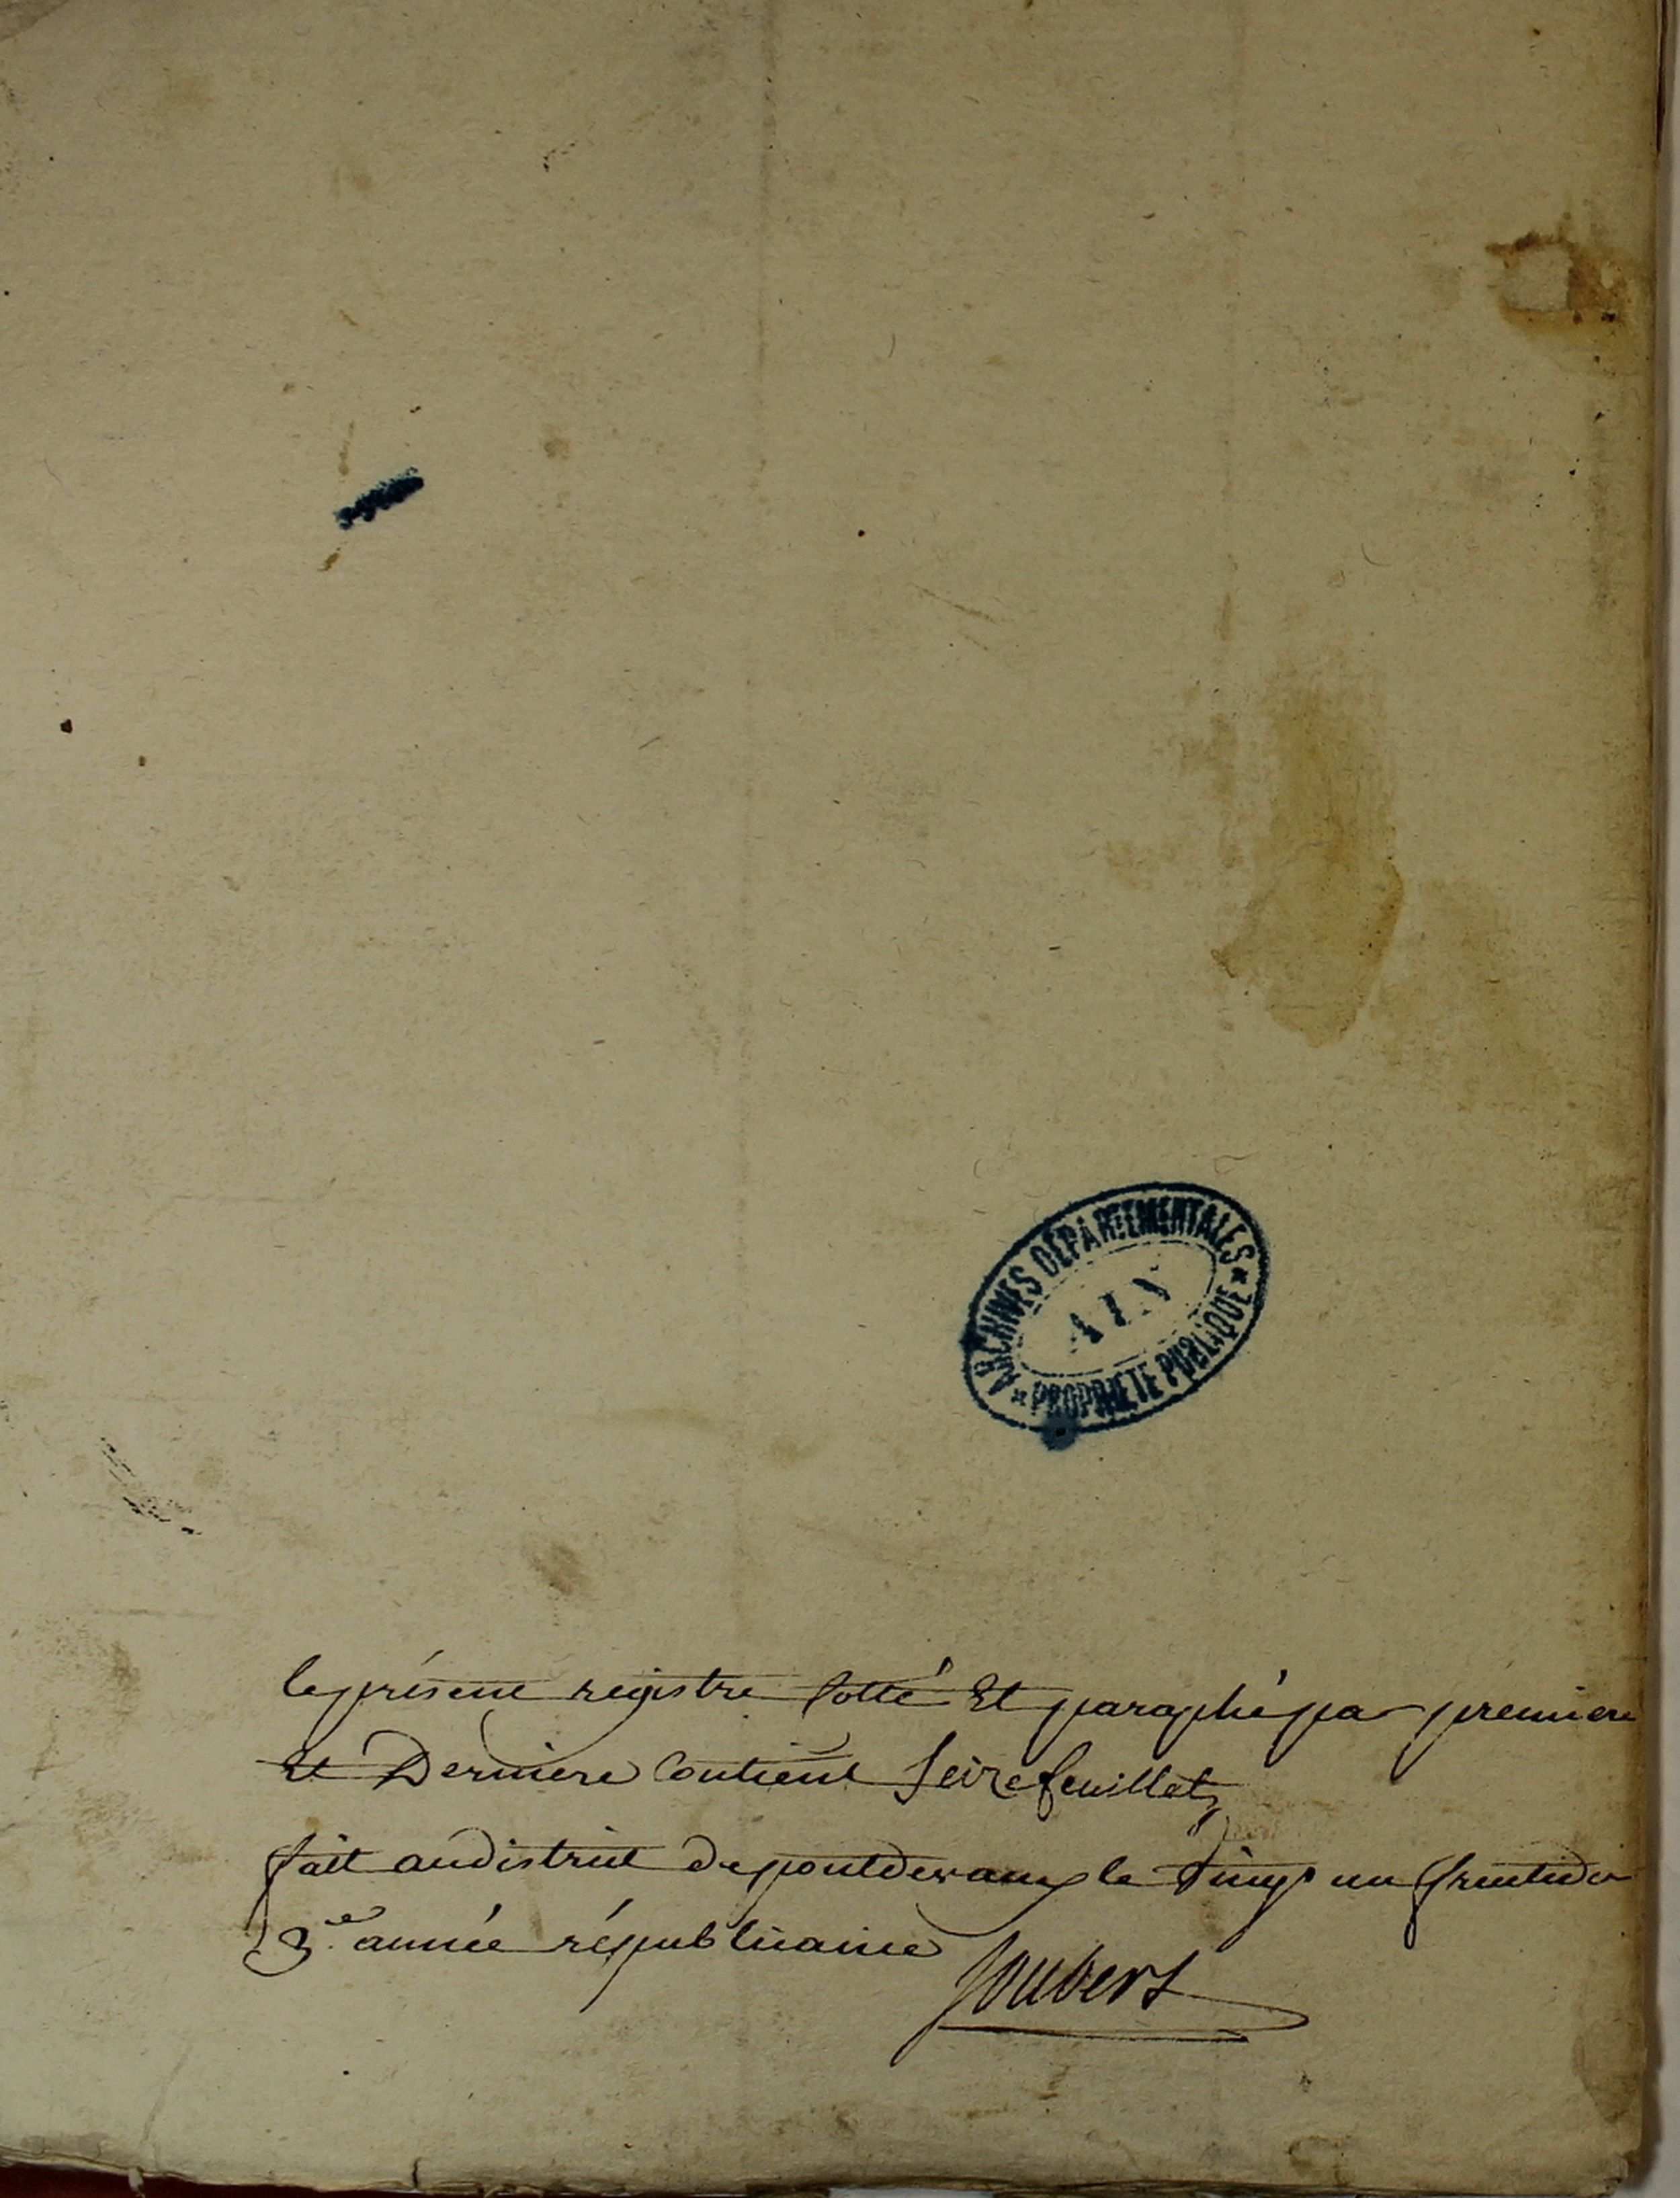 ARCHIVES DÉPARTEMENTALES
AIN
PROPRIÉTÉ PUBLIQUE
le présent registre Cotté Et paraphé par premiere
Et Derniere Contient Seize feuillets
fait au district de pontdevaux le vingt un fructidor
3.e année républicaine
Joubert